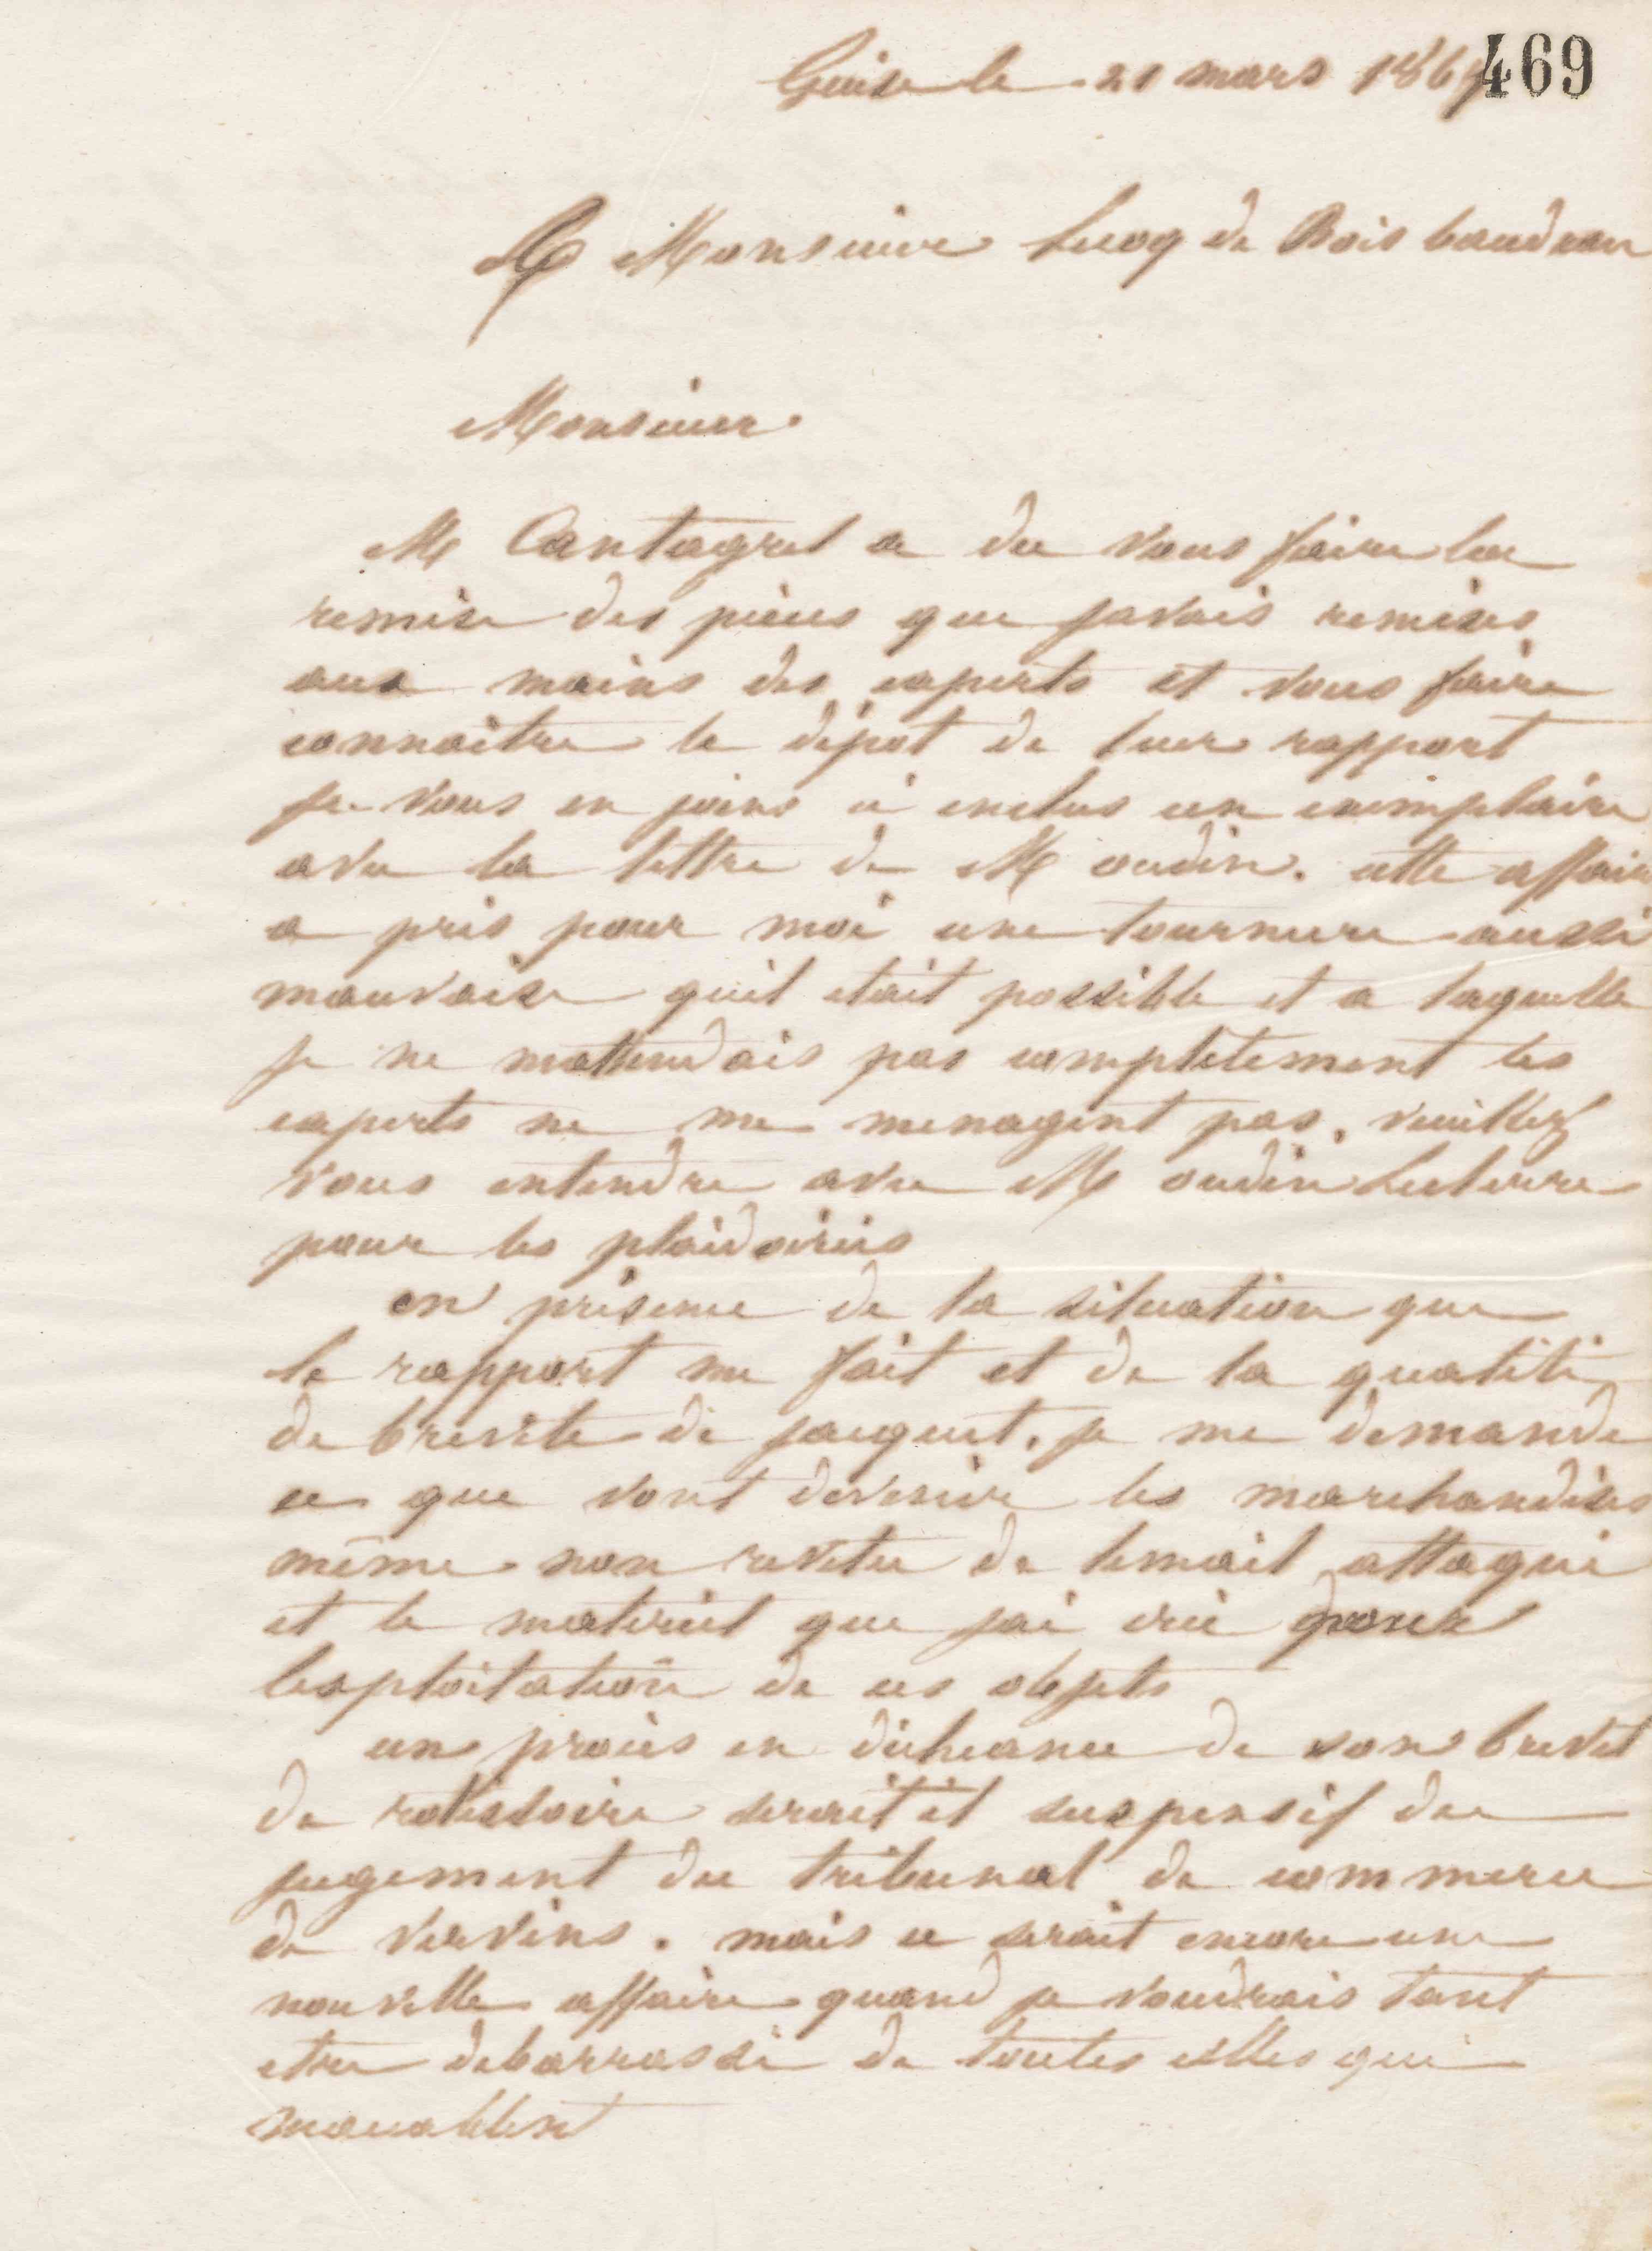 469
Guise le 21 mars 186
A Monsieur Lecoq de Boisbaudran
Monsieur
M Cantagrel a du vous faire la
remise des pièces que javais remises
aux mains des experts et vous faire
connaître le dépot de leur rapport
je vous en joins ci inclus un exemplaire
avec la lettre de M oudin. cette affaire
a pris pour moi une tournure aussi
mauvaise quil était possible et a laquelle
je ne mattendais pas complètement les
experts ne me menagent pas. veuillez
vous entendre avec M oudin
pour les plaidoiries
en présence de la situation que
le rapport me fait et de la quatité
de brevets de jacquet. je me demande
ce que vont devenir les marchandises
même non revetu de lémail attaqué
et le matériel que jai créé pour
lexploitation de ces objets
un procès en déchéance de son brevet
de rotissoire serait il suspensif du
jugement du tribunal de commerce
de vervins. mais ce serait encore une
nouvelle affaire quand je voudrais tant
etre debarrassé de toutes celles qui
maccablent